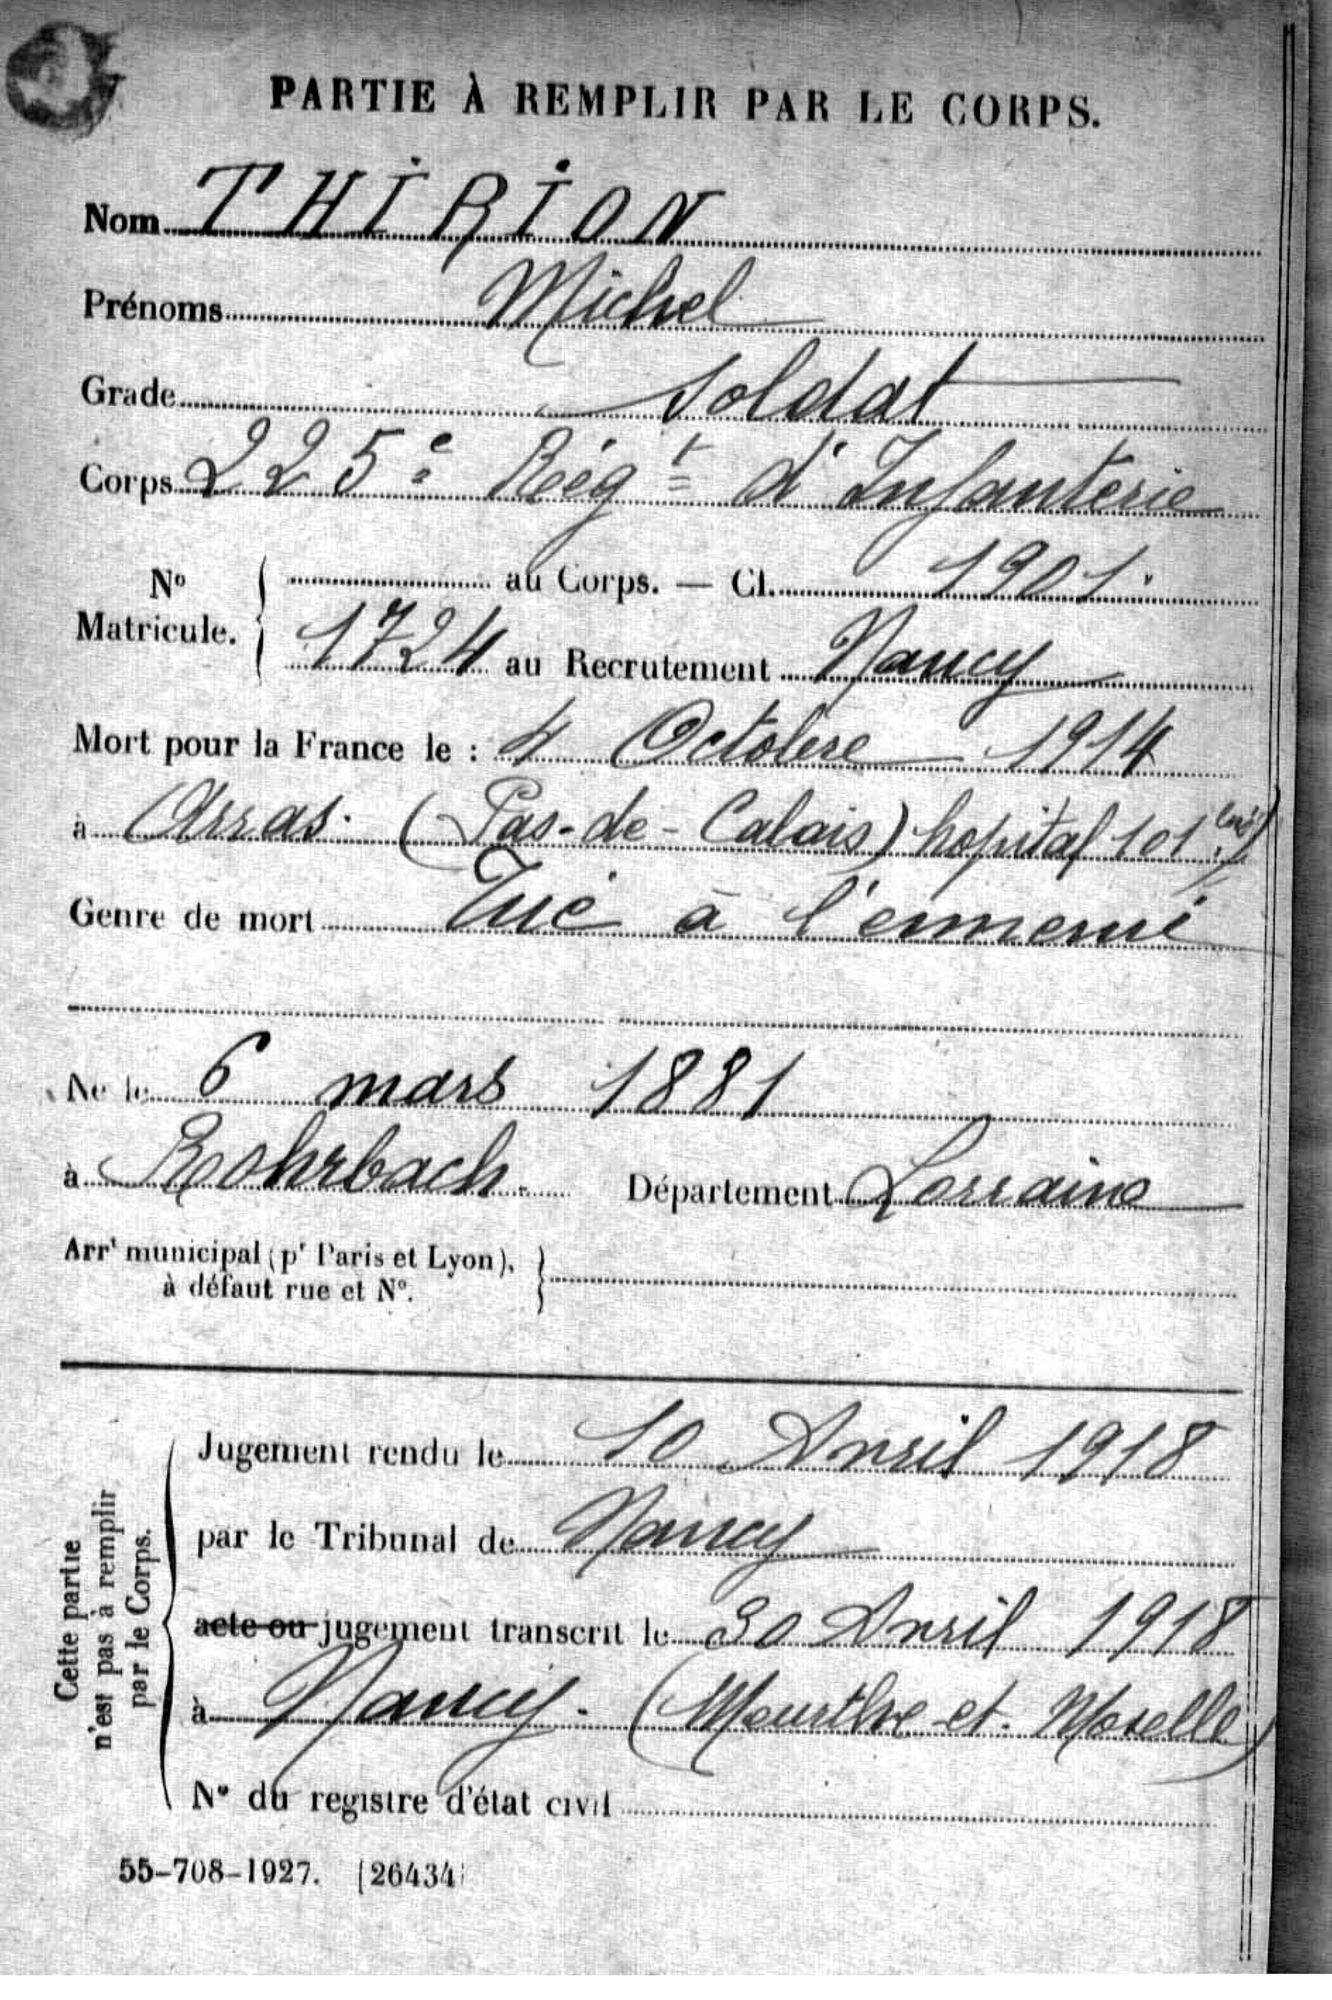 PARTIE À REMPLIR PAR LE CORPS.
Nom THIRION
Prénoms Michel
Grade Soldat
Corps 225e Régt d'Infanterie
No Matricule. { au Corps. — Cl. 1901.
1724 au Recrutement Nancy
Mort pour la France le : 4 Octobre 1914
à Arras. (Pas-de-Calais) hopital 101
Genre de mort Tué à l'ennemi
Né le 6 mars 1881
à Rohrbach. Département Lorraine
Arrt municipal (pr Paris et Lyon), }
à défaut rue et No.
Cette partie
n'est pas à remplir
par le Corps.
Jugement rendu le 10 Avril 1918
par le Tribunal de Nancy
acte ou jugement transcrit le 30 Avril 1918
à Nancy. (Meurthe-et-Moselle)
No du registre d'état civil
55-708-1927. [26434]